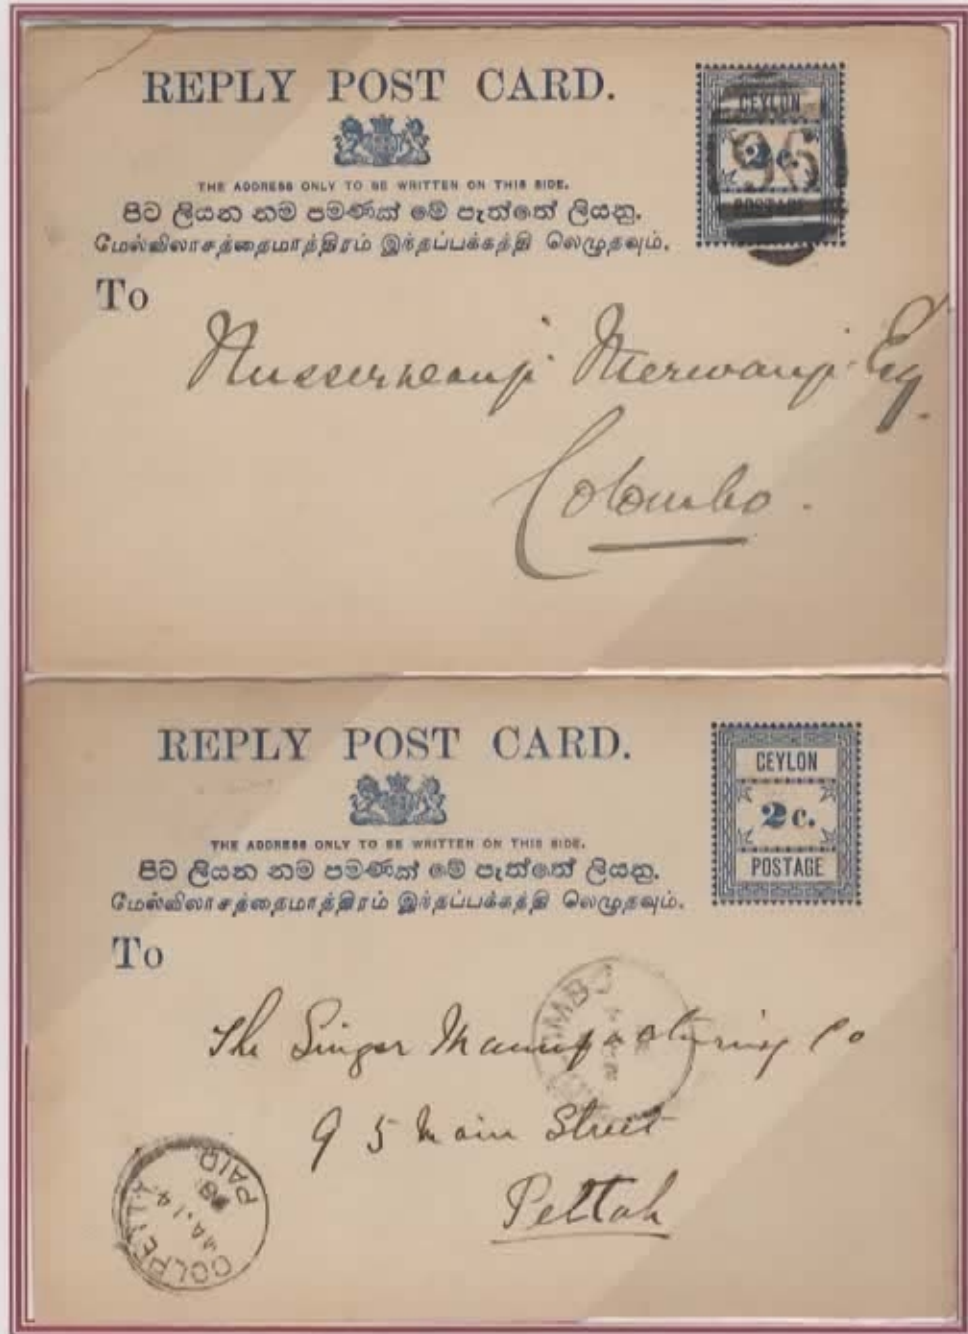 REPLY POST CARD.
CEYLON
2c.
96
POSTAGE
THE ADDRESS ONLY TO BE WRITTEN ON THIS SIDE.
පිට ලියන නම පමණක් මේ පැත්තේ ලියනු.
மேல்விலாசத்தைமாத்திரம் இந்தப்பக்கத்தி லெழுதவும்.
To
Nusserwanji Merwanji Esq.
Colombo.
REPLY POST CARD.
CEYLON
2c.
POSTAGE
THE ADDRESS ONLY TO BE WRITTEN ON THIS SIDE.
පිට ලියන නම පමණක් මේ පැත්තේ ලියනු.
மேல்விலாசத்தைமாத்திரம் இந்தப்பக்கத்தி லெழுதவும்.
To
The Singer Manufacturing Co
95 Main Street
Pettah
COLPETTY
JA. 14
PAID